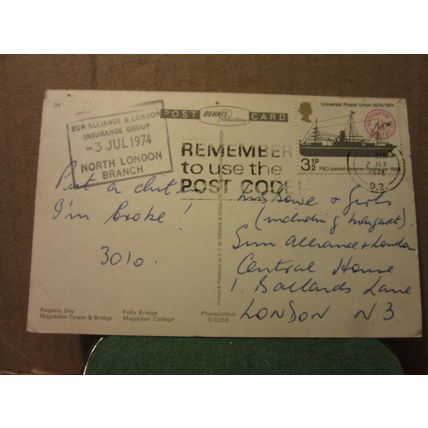 34
POST DENNIS CARD
SUN ALLIANCE & LONDON
INSURANCE GROUP
-3 JUL 1974
NORTH LONDON
BRANCH
REMEMBER
to use the
POST CODE
Universal Postal Union 1874/1974
3½P
P&O packet steamer Peninsular 1888
2 JLY
1974
Put a
I'm broke!
3010.
Miss Rowe & girls
(including Margaret).
Sun Alliance & London
Central House
1. Ballards Lane
LONDON N3
Printed & Published by E. T. W. DENNIS & SONS LTD.
Regatta Day Folly Bridge Photocolour
Magdalen Tower & Bridge Magdalen College O 0253